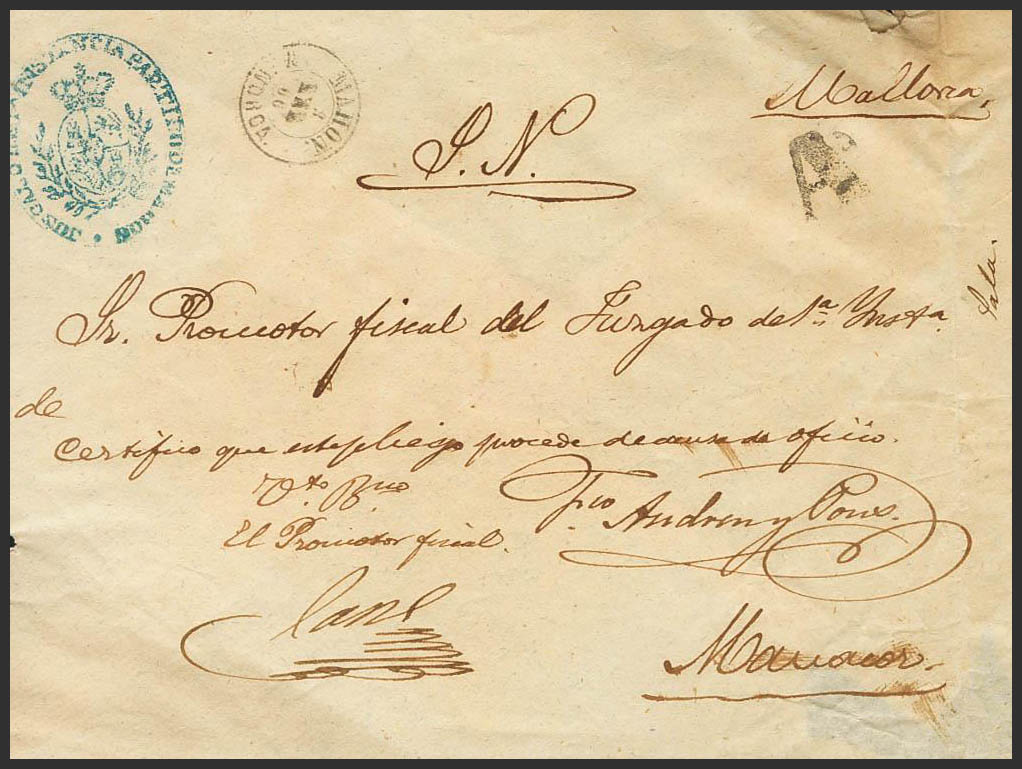 JUZGADO DE 1ª INSTANCIA PARTIDO DE MAHON
MAHON
Mallorca,
S. N.
A
Sr. Promotor fiscal del Juzgado de 1ª Ynsta
Pala.
de
Certifico que este pliego procede de causa de oficio.
Vto Bno
Fco Andreu y Pons.
El Promotor fiscal.
Manacor.